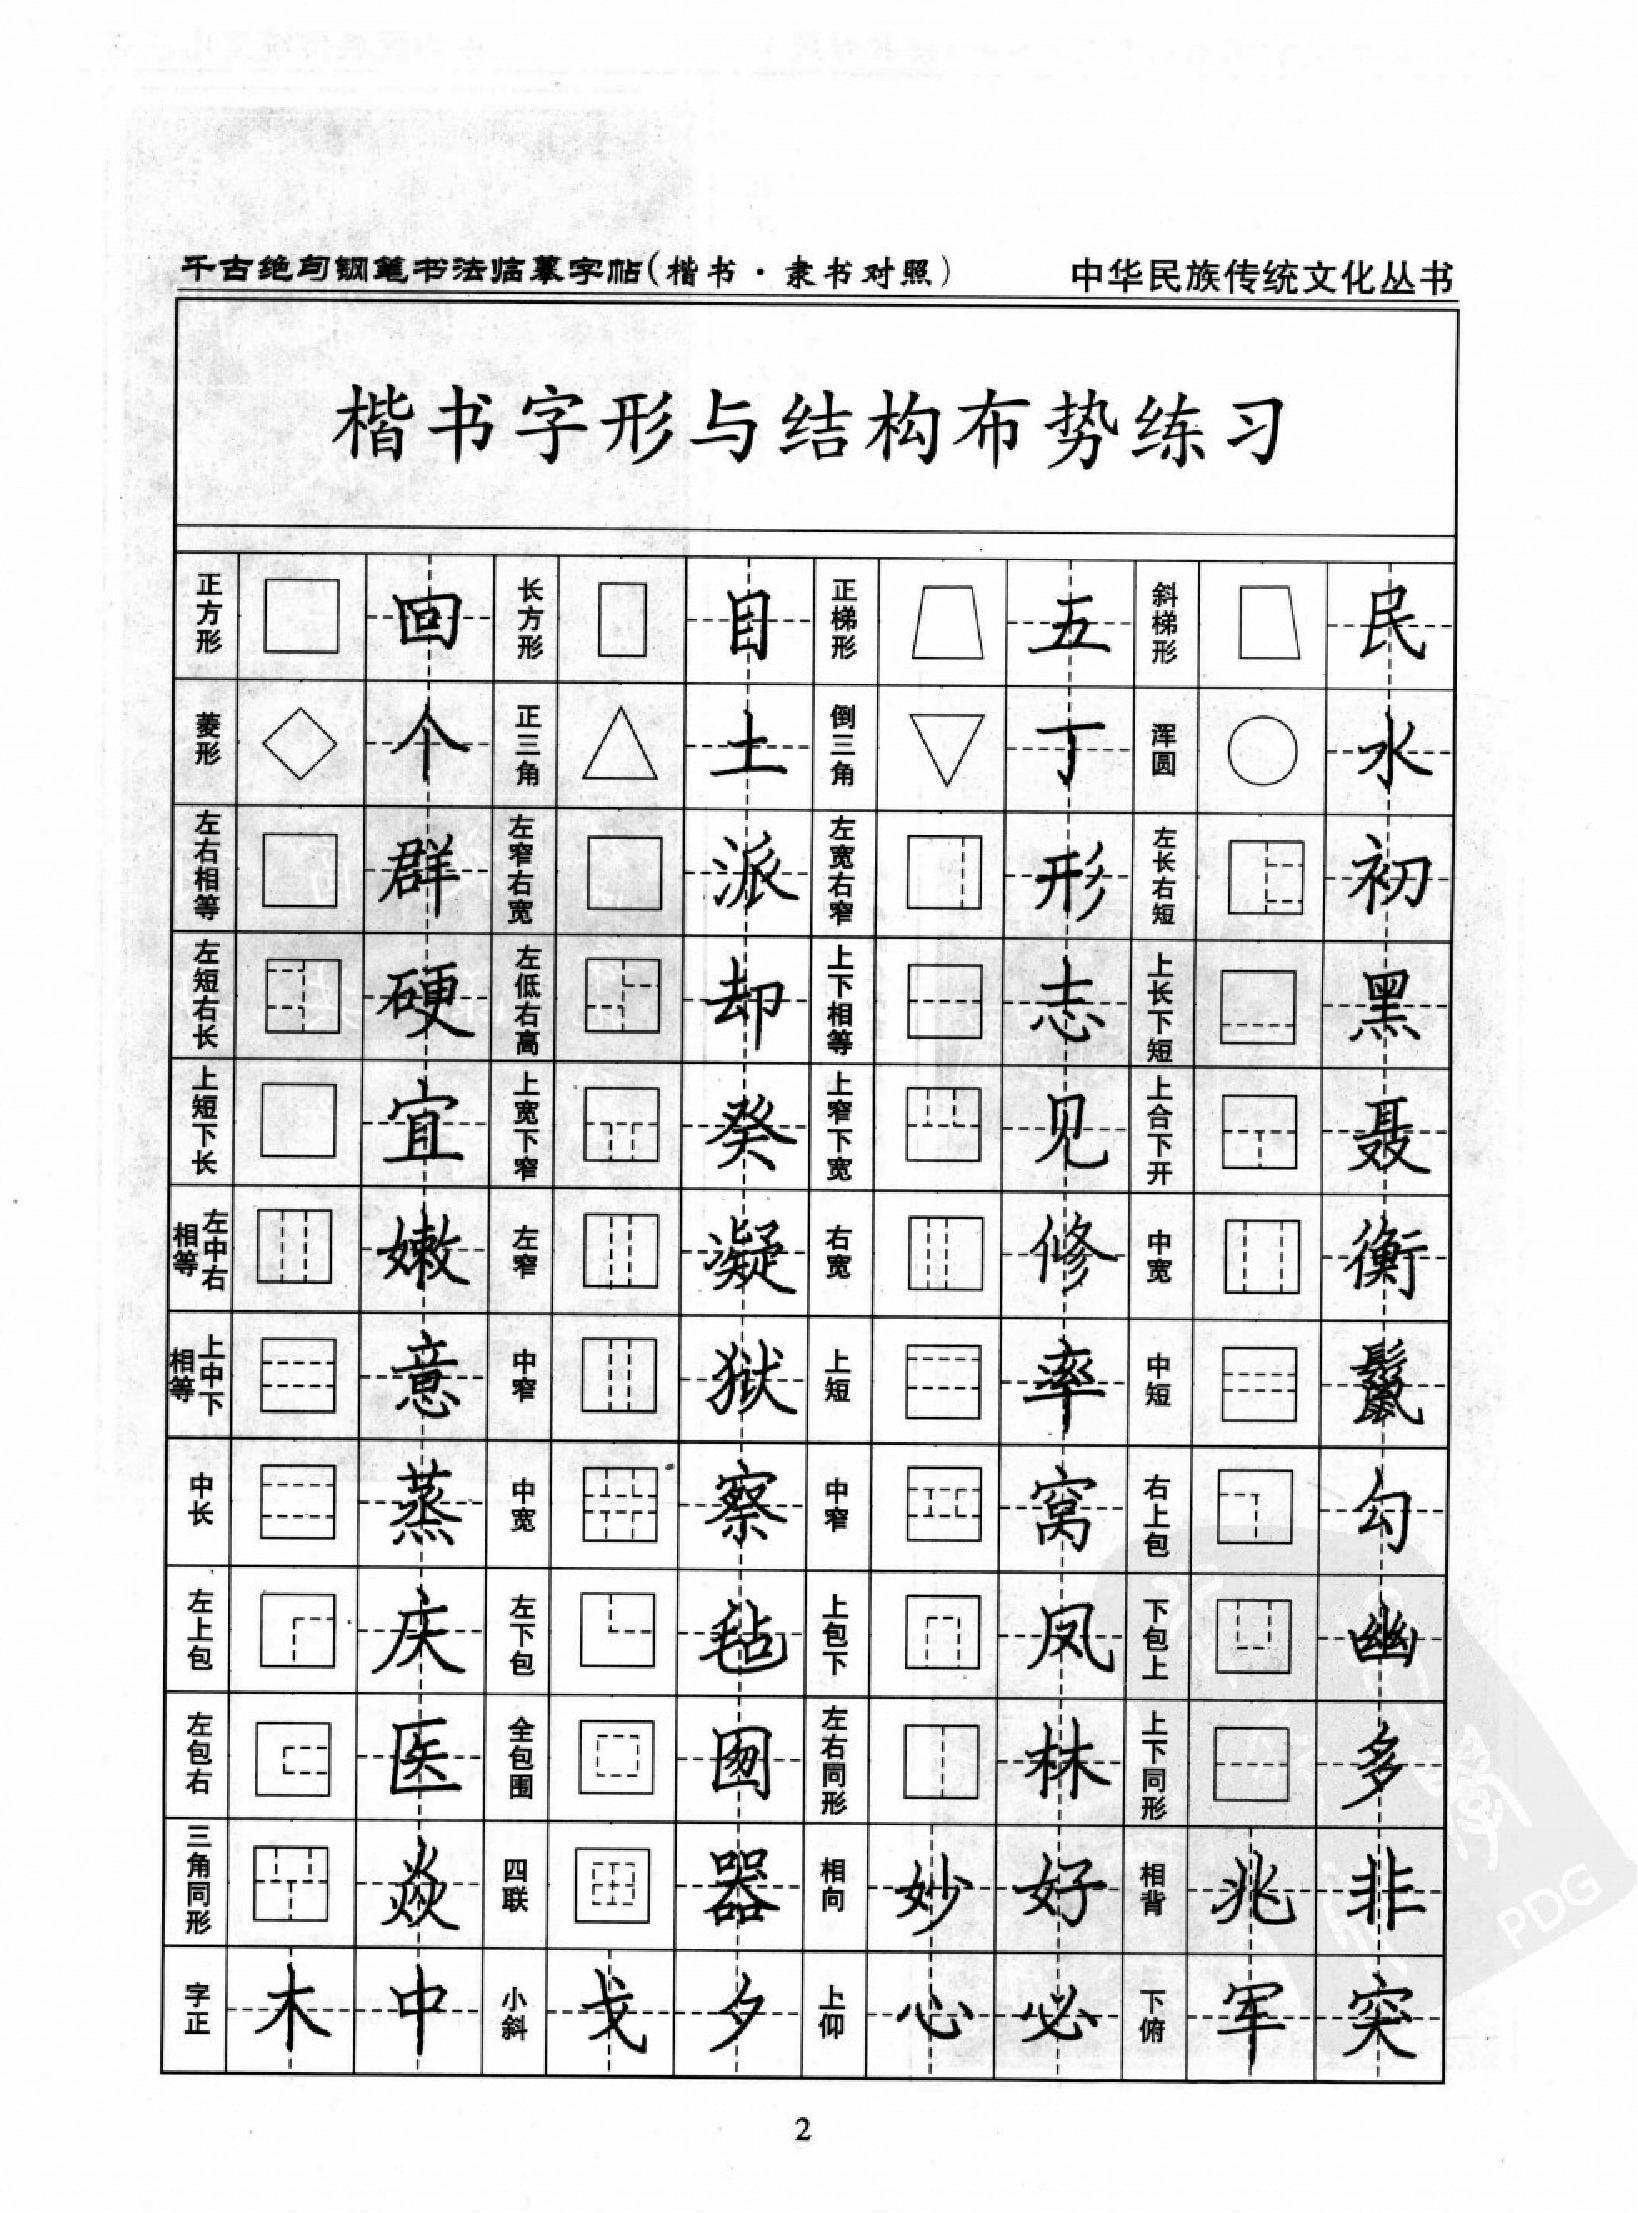 千古绝句钢笔书法临摹字帖(楷书·隶书对照) 中华民族传统文化丛书
楷书字形与结构布势练习
正方形 回 长方形 目 正梯形 五 斜梯形 民
菱形 个 正三角 土 倒三角 丁 浑圆 水
左右相等 群 左窄右宽 派 左宽右窄 形 左长右短 初
左短右长 硬 左低右高 却 上下相等 志 上长下短 黑
上短下长 宜 上宽下窄 癸 上窄下宽 见 上合下开 聂
左中右相等 嫩 左窄 凝 右宽 修 中宽 衡
上中下相等 意 中窄 狱 上短 率 中短 鬣
中长 蒸 中宽 察 中窄 窝 右上包 勾
左上包 庆 左下包 毡 上包下 凤 下包上 幽
左包右 医 全包围 囫 左右同形 林 上下同形 多
三角同形 焱 四联 器 相向 妙 好 相背 兆 非
字正 木 中 小斜 戈 夕 上仰 心 必 下俯 军 突
2
PDG